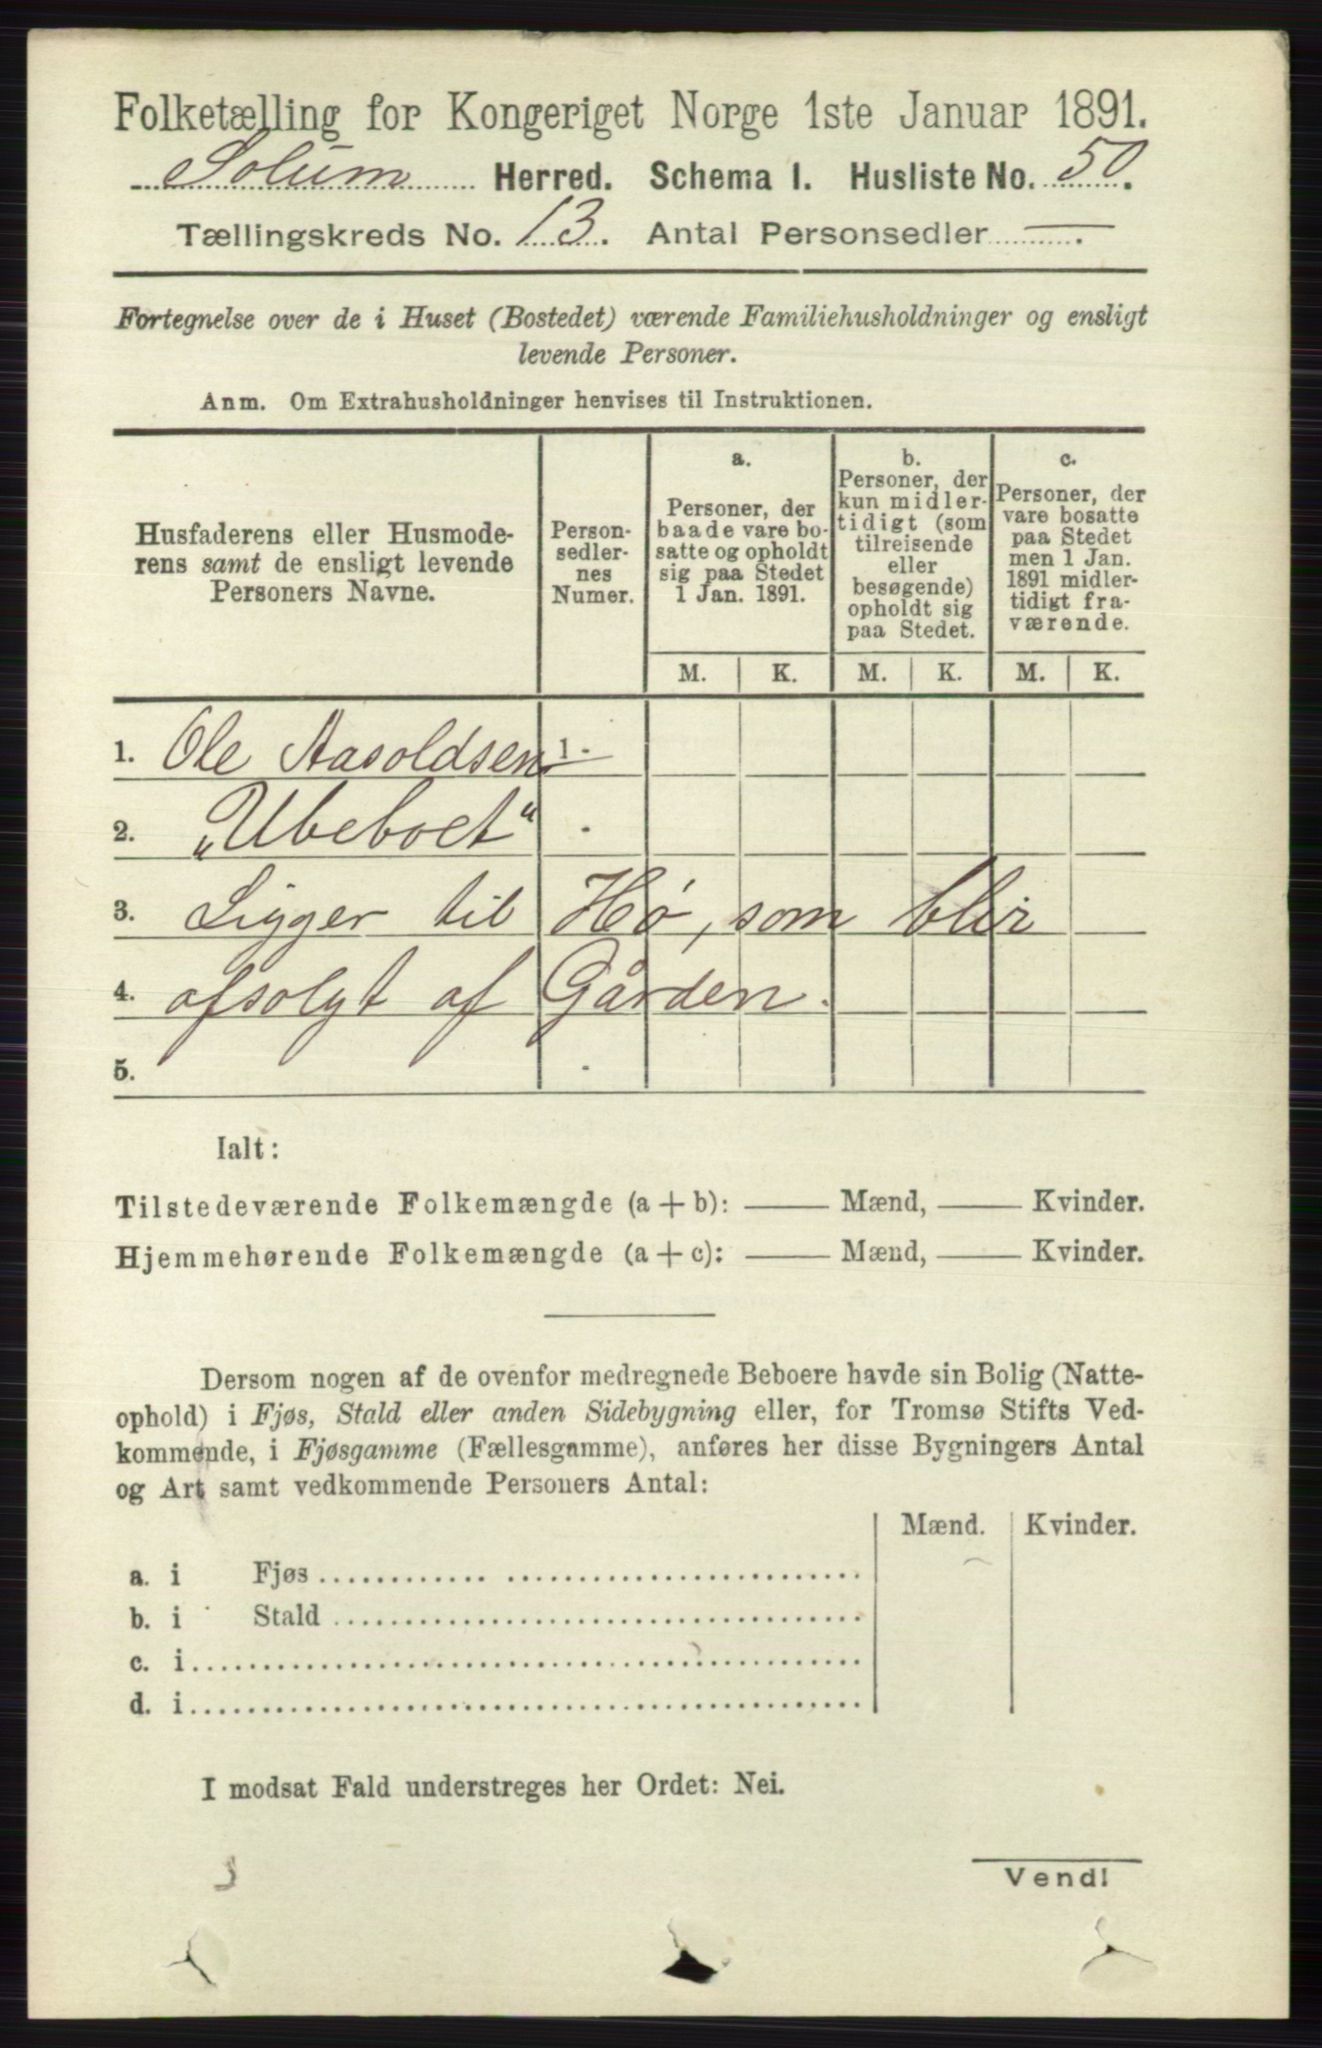 Folketælling for Kongeriget Norge 1ste Januar 1891.
Solum Herred. Schema 1. Husliste No. 50.
Tællingskreds No. 13. Antal Personsedler — .
Fortegnelse over de i Huset (Bostedet) værende Familiehusholdninger og ensligt
levende Personer.
Anm. Om Extrahusholdninger henvises til Instruktionen.
Husfaderens eller Husmode-
rens samt de ensligt levende
Personers Navne.
Person-
sedler-
nes
Numer.
a.
Personer, der
baade vare bo-
satte og opholdt
sig paa Stedet
1 Jan. 1891.
b.
Personer, der
kun midler-
tidigt (som
tilreisende
eller
besøgende)
opholdt sig
paa Stedet.
c.
Personer, der
vare bosatte
paa Stedet
men 1 Jan.
1891 midler-
tidigt fra-
værende.
M. K. M. K. M. K.
1. Ole Aasoldsen 1 -
2. „Ubeboet“ -
3. Ligger til Hø, som blir
4. afsolgt af Gården.
5. -
Ialt:
Tilstedeværende Folkemængde (a + b): — Mænd, — Kvinder.
Hjemmehørende Folkemængde (a + c): — Mænd, — Kvinder.
Dersom nogen af de ovenfor medregnede Beboere havde sin Bolig (Natte-
ophold) i Fjøs, Stald eller anden Sidebygning eller, for Tromsø Stifts Ved-
kommende, i Fjøsgamme (Fællesgamme), anføres her disse Bygningers Antal
og Art samt vedkommende Personers Antal:
Mænd. Kvinder.
a. i Fjøs
b. i Stald
c. i
d. i
I modsat Fald understreges her Ordet: Nei.
Vend!